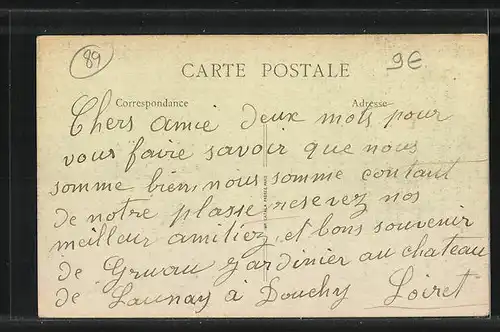 89
9€
CARTE POSTALE
Correspondance
Adresse
Chers amie deux mots pour
vous faire savoir que nous
somme bien, nous somme contant
de notre plasse resevez nos
meilleur amitiez, et bons souvenir
de Gruau gardinier au chateau
de Launay à Douchy Loiret